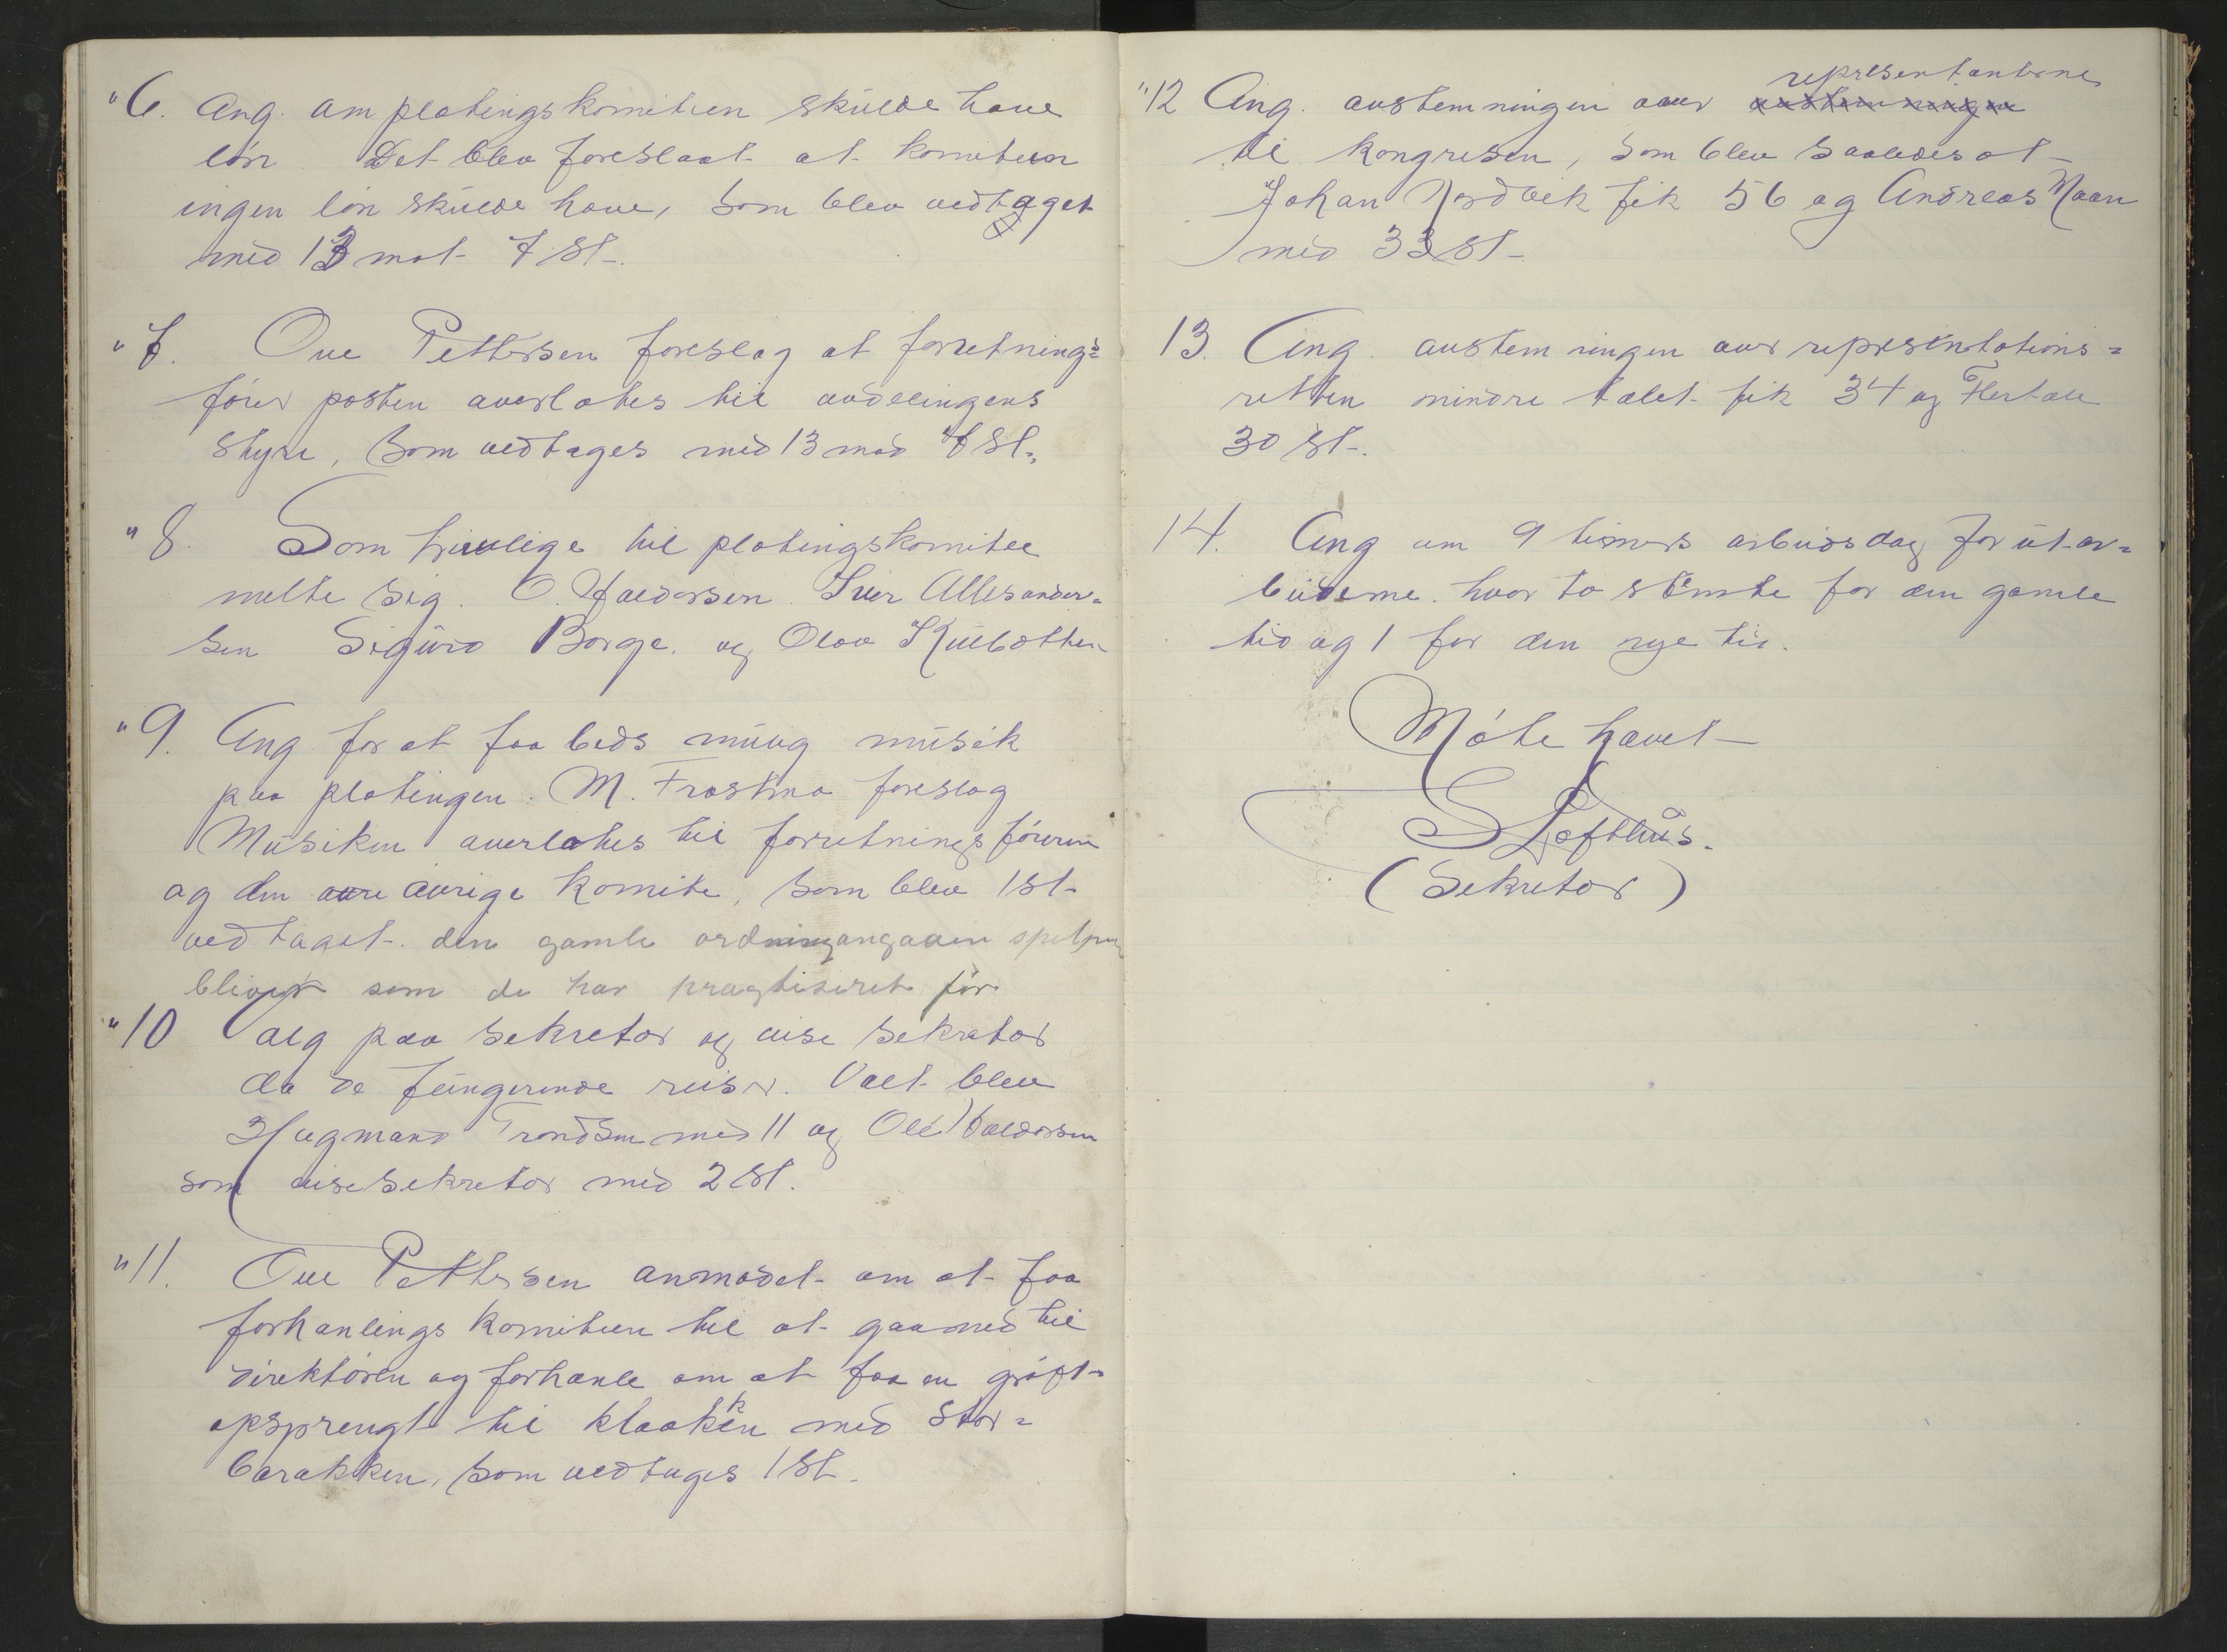 "6. Ang. om platingskomiteen skulde have
lön Det blev foreslaat at komiteen
ingen lön skulde have, som blev vedtaget
med 13 mot 7 St.
"7. Ove Pettersen foreslog at forretnings=
förer posten averlates til avdelingens
styre, som vedtages med 13 mod 7 St.
"8. Som frivilige til platingskomitee
melte sig. O. Haldorsen. Iver Allesander=
sen Sigurd Borge. og Olov Kulbotten
"9. Ang for at faa beds mulig musik
paa platingen. M. Frostmo foreslog
Musiken averlates til forretningsföreren
og den avrige komite, som blev 1 St
vedtaget. den gamle ordning angaaen
bliver som de har pragtiseret för
"10 Valg paa sekretær og vise sekretær
da de fungerende reiser. Valt blev
Hagmand Trondsen med 11 og Ole Haldorsen
som vise sekretær med 2 St.
"11. Ove Pettersen anmodet om at faa
forhanlings komiteen til at gaa med til
direktören og forhanle om at faa en gröft
opsprengt til kloakken med Stor=
barakken, som vedtages 1 St.
"12 Ang. avstemningen over representanterne
til kongresen, som blev saaledes at
Johan Nordvik fik 56 og Andreas Moan
med 33 St
13. Ang. avstemningen over representations=
retten mindre talet fik 34 og Flertall
30 St.
14. Ang om 9 timers arbeidsdag for utar=
beiderne. hvor to stemte for den gamle
tid og 1 for den nye tid.
Möte hævet
S Lofthus.
(Sekretær)